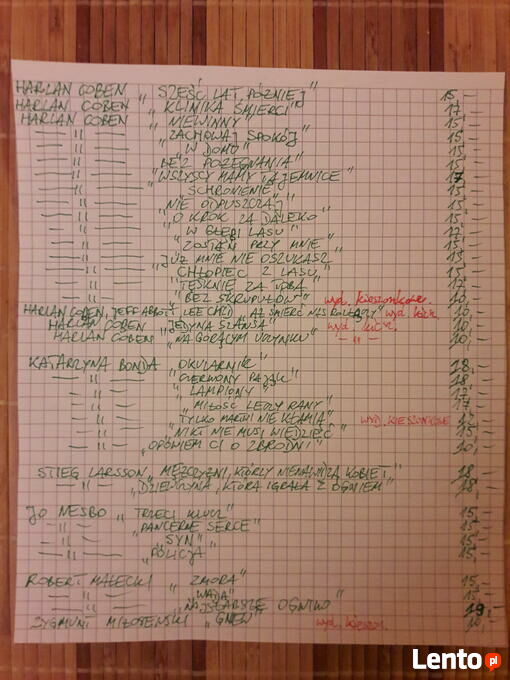 HARLAN COBEN „SZEŚĆ LAT PÓŹNIEJ" 15,-
HARLAN COBEN „KLINIKA ŚMIERCI" 17,-
HARLAN COBEN „NIEWINNY" 15,-
— " — „ZACHOWAJ SPOKÓJ" 15,-
— " — „W DOMU" 15,-
— " — „BEZ POŻEGNANIA" 15,-
— " — „WSZYSCY MAMY TAJEMNICE" 17,-
— " — „SCHRONIENIE" 15,-
— " — „NIE ODPUSZCZAJ" 15,-
— " — „O KROK ZA DALEKO" 15,-
— " — „W GŁĘBI LASU" 17,-
— " — „ZOSTAŃ PRZY MNIE" 15,-
— " — „JUŻ MNIE NIE OSZUKASZ" 15,-
— " — „CHŁOPIEC Z LASU" 15,-
— " — „TĘSKNIĘ ZA TOBĄ" 17,-
— " — „BEZ SKRUPUŁÓW" wyd. kieszonkowe. 10,-
HARLAN COBEN, JEFF ABBOTT, LEE CHILD „AŻ ŚMIERĆ NAS ROZŁĄCZY" wyd. 10,-
HARLAN COBEN „JEDYNA SZANSA" wyd. 10,-
HARLAN COBEN „NA GORĄCYM UCZYNKU" — " — 10,-
KATARZYNA BONDA „OKULARNIK" 18,-
— " — „CZERWONY PAJĄK" 18,-
— " — „LAMPIONY"
— " — „MIŁOŚĆ LECZY RANY" 17,-
— " — „TYLKO MARTWI NIE KŁAMIĄ" WYD. KIESZONKOWE
— " — „NIKT NIE MUSI WIEDZIEĆ" 15,-
— " — „OPOWIEM CI O ZBRODNI" 10,-
STIEG LARSSON „MĘŻCZYŹNI, KTÓRZY NIENAWIDZĄ KOBIET" 18,-
— " — „DZIEWCZYNA, KTÓRA IGRAŁA Z OGNIEM" 18,-
JO NESBO „TRZECI KLUCZ" 15,-
— " — „PANCERNE SERCE" 15,-
— " — „SYN" 15,-
— " — „POLICJA" 15,-
ROBERT MAŁECKI „ZMORA" 15,-
— " — „WADA" 15,-
— " — „NAJSŁABSZE OGNIWO" 19,-
ZYGMUNT MIŁOSZEWSKI „GNIEW" wyd. kieszon. 10,-
Lento.pl